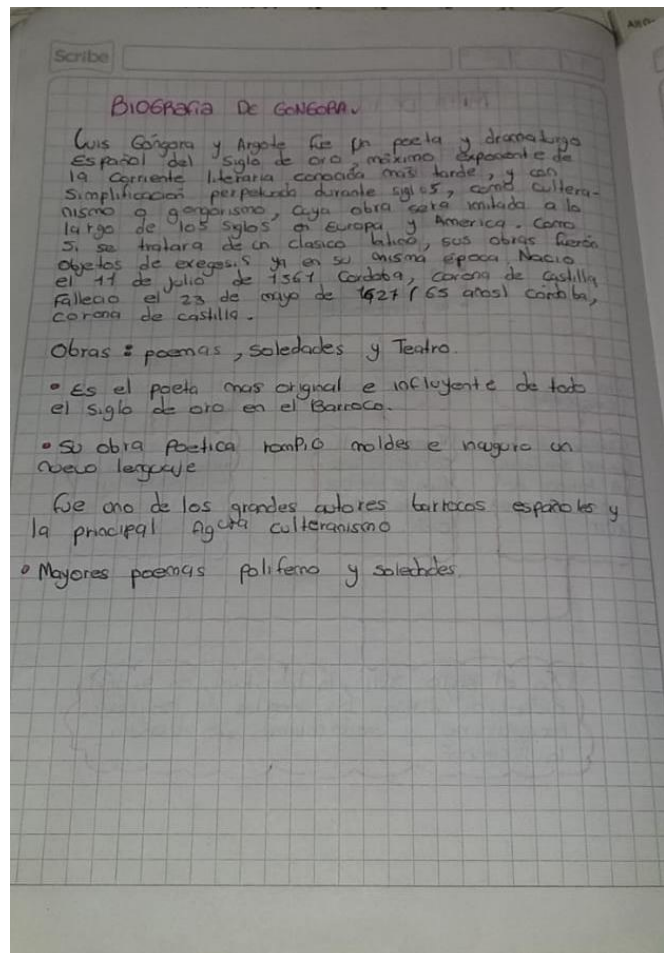 Scribe
BIOGRAFIA DE GONGORA.
Luis Góngora y Argote fue un poeta y dramaturgo
Español del siglo de oro, máximo exponente de
la corriente literaria conocida más tarde, y con
simplificación perpetuada durante siglos, como cultera-
nismo o gongorismo, cuya obra será imitada a lo
largo de los siglos en Europa y America. Como
si se tratara de un clasico latino, sus obras fuerón
objetos de exegesis ya en su misma época. Nacio
el 11 de julio de 1561 Cordoba, corona de castilla
Fallecio el 23 de mayo de 1627 (65 años) córdoba,
corona de castilla.
Obras : poemas, soledades y Teatro.
• Es el poeta mas original e influyente de todo
el siglo de oro en el Barroco.
• Su obra Poetica rompio moldes e naguro un
nuevo lenguaje
Fue uno de los grandes autores barrocos españoles y
la principal figura culteranismo
• Mayores poemas polifemo y soledades.